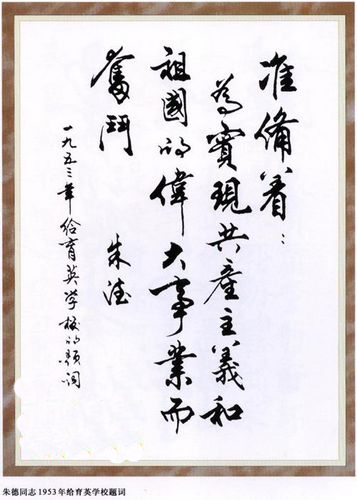 准備着：
為實現共產主義和
祖國的偉大事業而
奮鬥
朱德
一九五三年給育英学校的題词
朱德同志1953年给育英学校题词